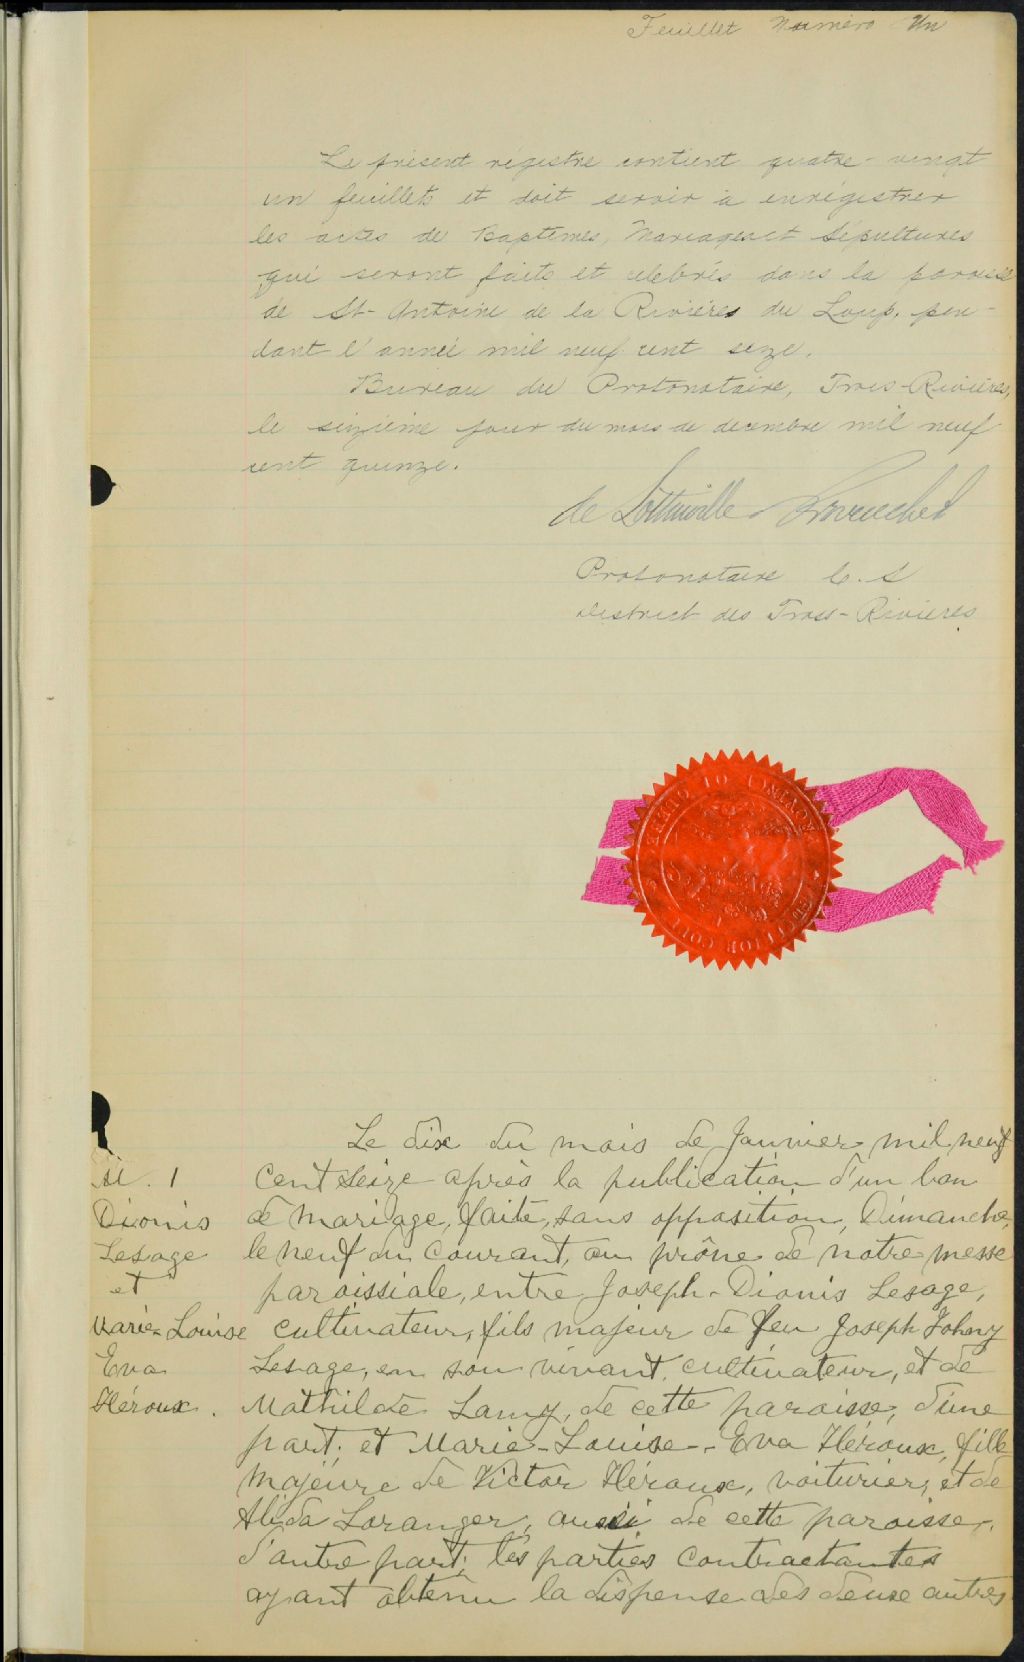 Feuillet Numéro Un
Le présent régistre contient quatre-vingt
un feuillets et doit servir à enrégistrer
les actes de Baptêmes, Mariages et Sépultures
qui seront faits et célébrés dans la paroisse
de St-Antoine de la Rivières du Loup, pen-
dant l'année mil neuf cent seize.
Bureau du Protonotaire, Trois-Rivières,
le sizième jour du mois de decembre mil neuf
cent quinze.
de Lottinville
Protonotaire C. S
District des Trois-Rivières
PROVINCE OF QUEBEC
SUPERIOR COURT
Le dix du mois de Janvier mil neuf
M. 1
cent seize après la publication d'un ban
Dionis
de mariage, faite, sans opposition, Dimanche,
Lesage
le neuf du courant, au prône de notre messe
et
paroissiale, entre Joseph-Dionis Lesage,
Marie-Louise
cultivateur, fils majeur de feu Joseph Johny
Eva
Lesage, en son vivant cultivateur, et de
Héroux.
Mathilde Lamy, de cette paroisse, d'une
part; et Marie-Louise-Eva Héroux, fille
majeure de Victor Héroux, voiturier, et de
Alida Loranger, aussi de cette paroisse,
d'autre part; les parties contractantes
ayant obtenu la dispense des deux autres